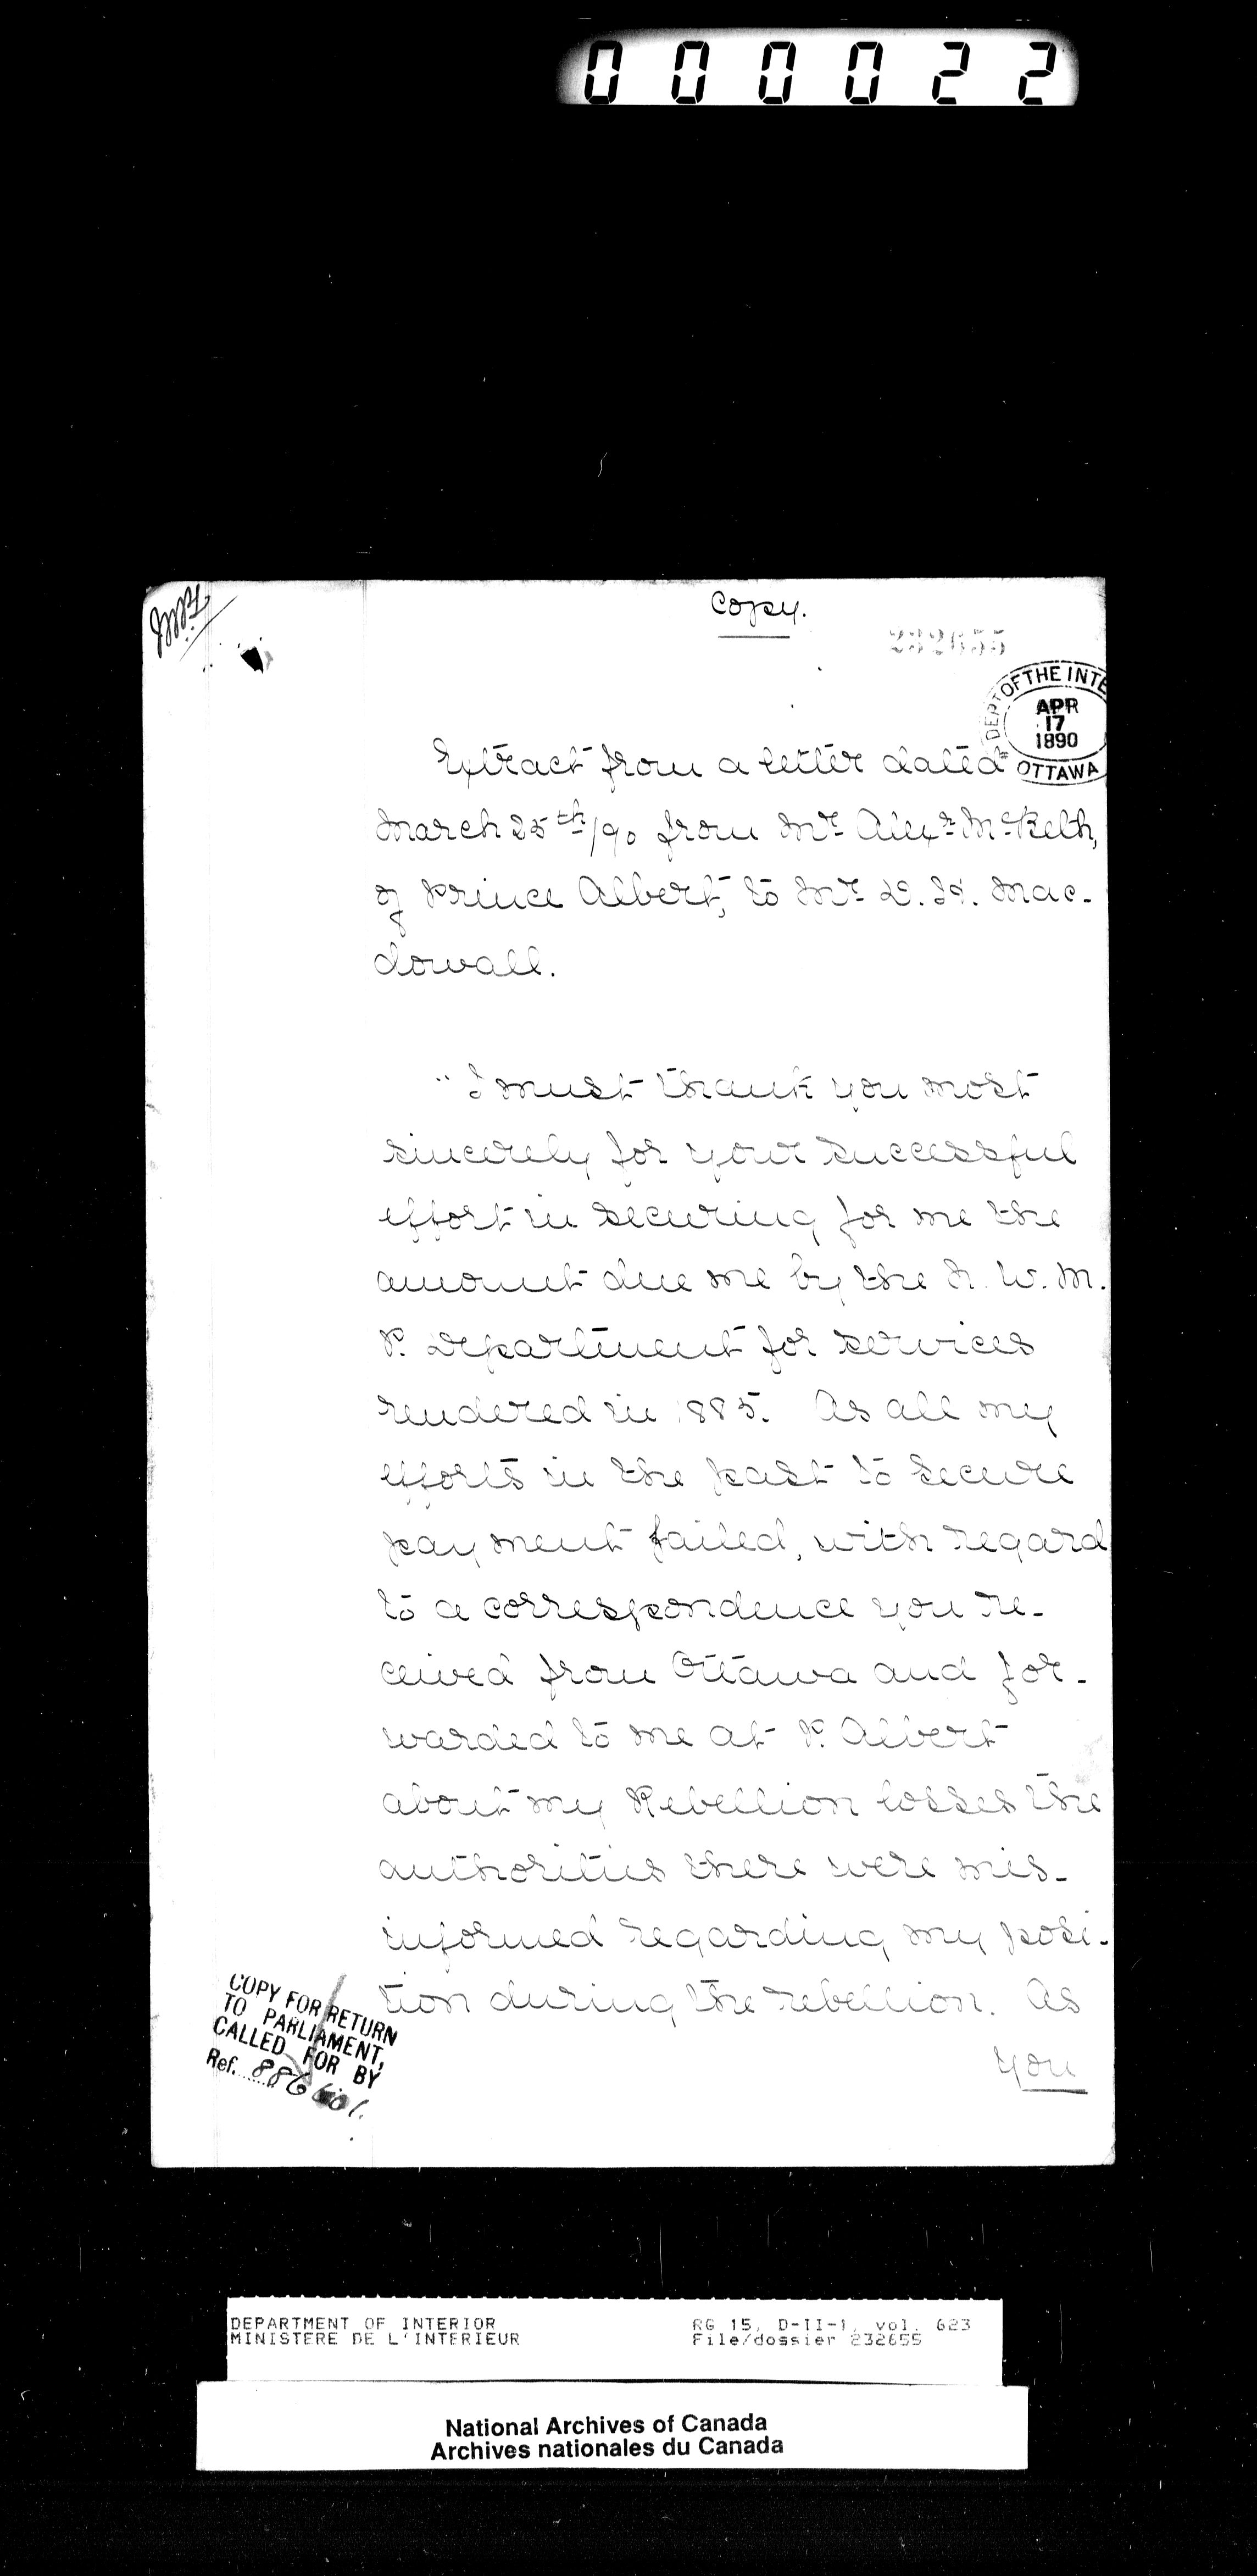 000022
Copy.
232655
DEPT OF THE INTE
APR
17
1890
OTTAWA
Extract from a letter dated
March 25th/90 from Mr Alexr McBeth,
of Prince Albert, to Mr D. H. Mac-
dowall.
"I must thank you most
sincerely for your successful
effort in securing for me the
amount due me by the N. W. M.
P. Department for services
rendered in 1885. As all my
efforts in the past to secure
payment failed, with regard
to a correspondence you re-
ceived from Ottawa and for-
warded to me at P. Albert
about my Rebellion losses the
authorities there were mis-
informed regarding my posi-
tion during the rebellion. As
you
COPY FOR RETURN
TO PARLIAMENT,
CALLED FOR BY
Ref. 886601.
DEPARTMENT OF INTERIOR RG 15, D-II-1, vol. 623
MINISTERE DE L'INTERIEUR File/dossier 232655
National Archives of Canada
Archives nationales du Canada